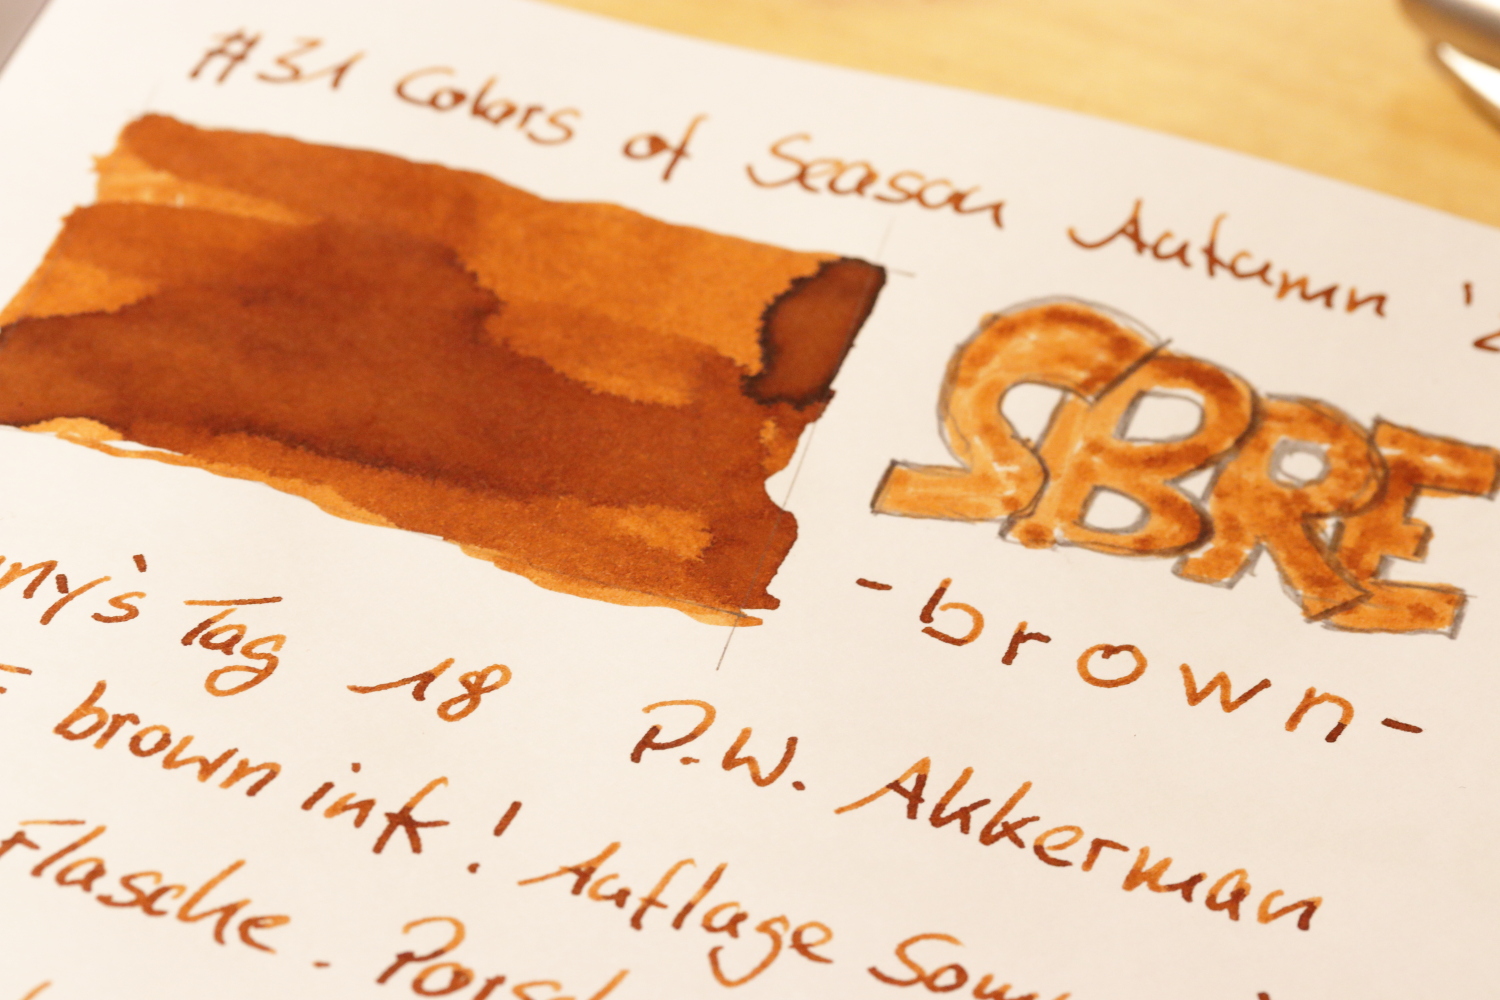 #31 Colors of Season Autumn '2
SBRE
-brown-
ny's Tag 18 P.W. Akkerman
brown ink! Auflage Som
Flasche. Porsc